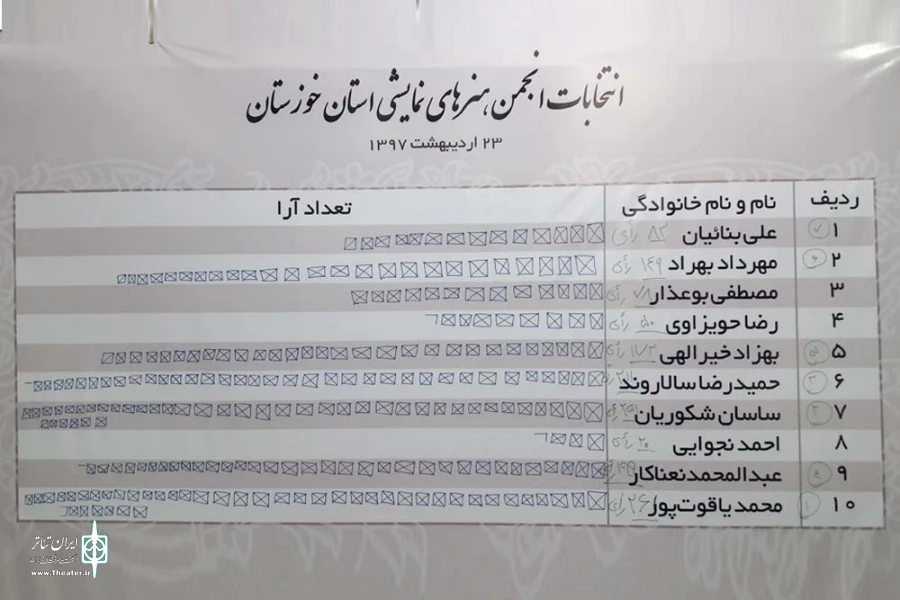 انتخابات انجمن هنرهای نمایشی استان خوزستان
۲۳ اردیبهشت ۱۳۹۷
ردیف نام و نام خانوادگی تعداد آرا
۱ علی بنائیان ۸۲ رأی
۲ مهرداد بهراد ۱۴۹ رأی
۳ مصطفی بوعذار ۷۸ رأی
۴ رضا حویزاوی ۵۰ رأی
۵ بهزاد خیرالهی ۱۷۳ رأی
۶ حمیدرضا سالاروند
۷ ساسان شکوریان
۸ احمد نجوایی ۲۰ رأی
۹ عبدالمحمد نعناکار
۱۰ محمد یاقوت‌پور ۲۶۱ رأی
ایران تئاتر
www.Theater.ir